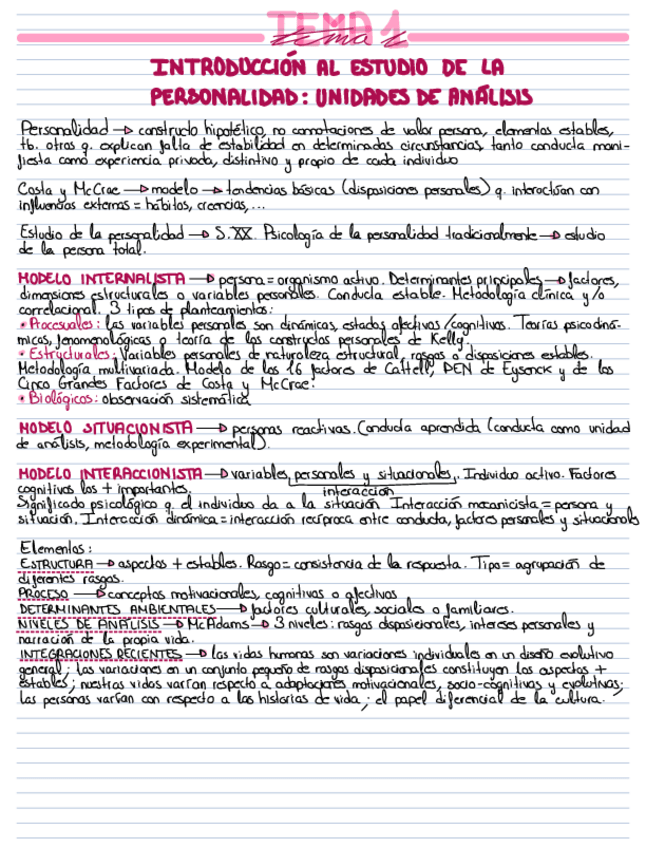 TEMA 1
tema 1
INTRODUCCIÓN AL ESTUDIO DE LA
PERSONALIDAD: UNIDADES DE ANÁLISIS
Personalidad → constructo hipotético, no connotaciones de valor persona, elementos estables,
tb. otros q. explican falta de estabilidad en determinadas circunstancias, tanto conducta mani-
fiesta como experiencia privada, distintivo y propio de cada individuo
Costa y McCrae → modelo → tendencias básicas (disposiciones personales) q. interactúan con
influencias externas = hábitos, creencias,...
Estudio de la personalidad → S. XX. Psicología de la personalidad tradicionalmente → estudio
de la persona total.
MODELO INTERNALISTA → persona = organismo activo. Determinantes principales → factores,
dimensiones estructurales o variables personales. Conducta estable. Metodología clínica y/o
correlacional. 3 tipos de planteamientos:
• Procesuales: las variables personales son dinámicas, estados afectivos/cognitivos. Teorías psicodiná-
micas, fenomenológicas o teoría de los constructos personales de Kelly.
• Estructurales: Variables personales de naturaleza estructural, rasgos o disposiciones estables.
Metodología multivariada. Modelo de los 16 factores de Cattell, PEN de Eysenck y de los
Cinco Grandes Factores de Costa y McCrae.
• Biológicos: observación sistemática
MODELO SITUACIONISTA → personas reactivas. Conducta aprendida (conducta como unidad
de análisis, metodología experimental).
MODELO INTERACCIONISTA → variables personales y situacionales. Individuo activo. Factores
cognitivos los + importantes.
interacción
Significado psicológico q el individuo da a la situación Interacción mecanicista = persona y
situación. Interacción dinámica = interacción recíproca entre conducta, factores personales y situacionals
Elementos:
ESTRUCTURA → aspectos + estables. Rasgo = consistencia de la respuesta. Tipo = agrupación de
diferentes rasgos.
PROCESO → conceptos motivacionales, cognitivos o afectivos
DETERMINANTES AMBIENTALES → factores culturales, sociales o familiares.
NIVELES DE ANÁLISIS → McAdams → 3 niveles: rasgos disposicionales, intereses personales y
narración de la propia vida.
INTEGRACIONES RECIENTES → las vidas humanas son variaciones individuales en un diseño evolutivo
general; las variaciones en un conjunto pequeño de rasgos disposicionales constituyen los aspectos +
estables; nuestras vidas varían respecto a adaptaciones motivacionales, socio-cognitivas y evolutivas;
las personas varían con respecto a las historias de vida; el papel diferencial de la cultura.